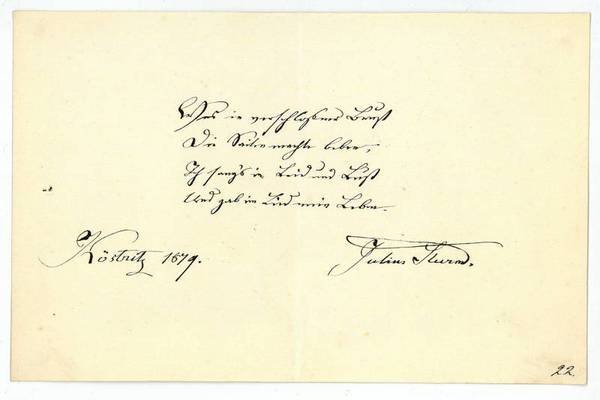 Was in verschloßner Brust
Die Saiten machte beben,
Ich sang's in Leid und Lust
Und gab im Lied mein Leben.
Köstritz 1879.
Julius Sturm.
22